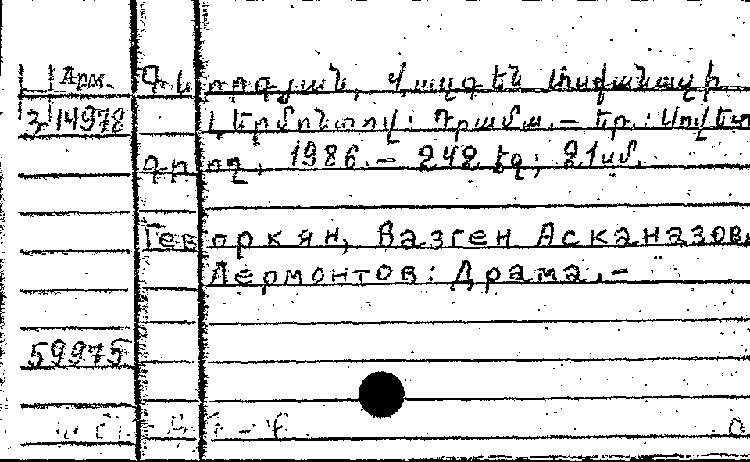 Арм. Գևորգյան, Վազգեն
3 14978 Լերմոնտով: Դրամա.— Եր.: Սովետ
գրող, 1986.— 242 էջ; 21սմ.
Геворкян, Вазген Асканазов.
Лермонтов: Драма.—
59975